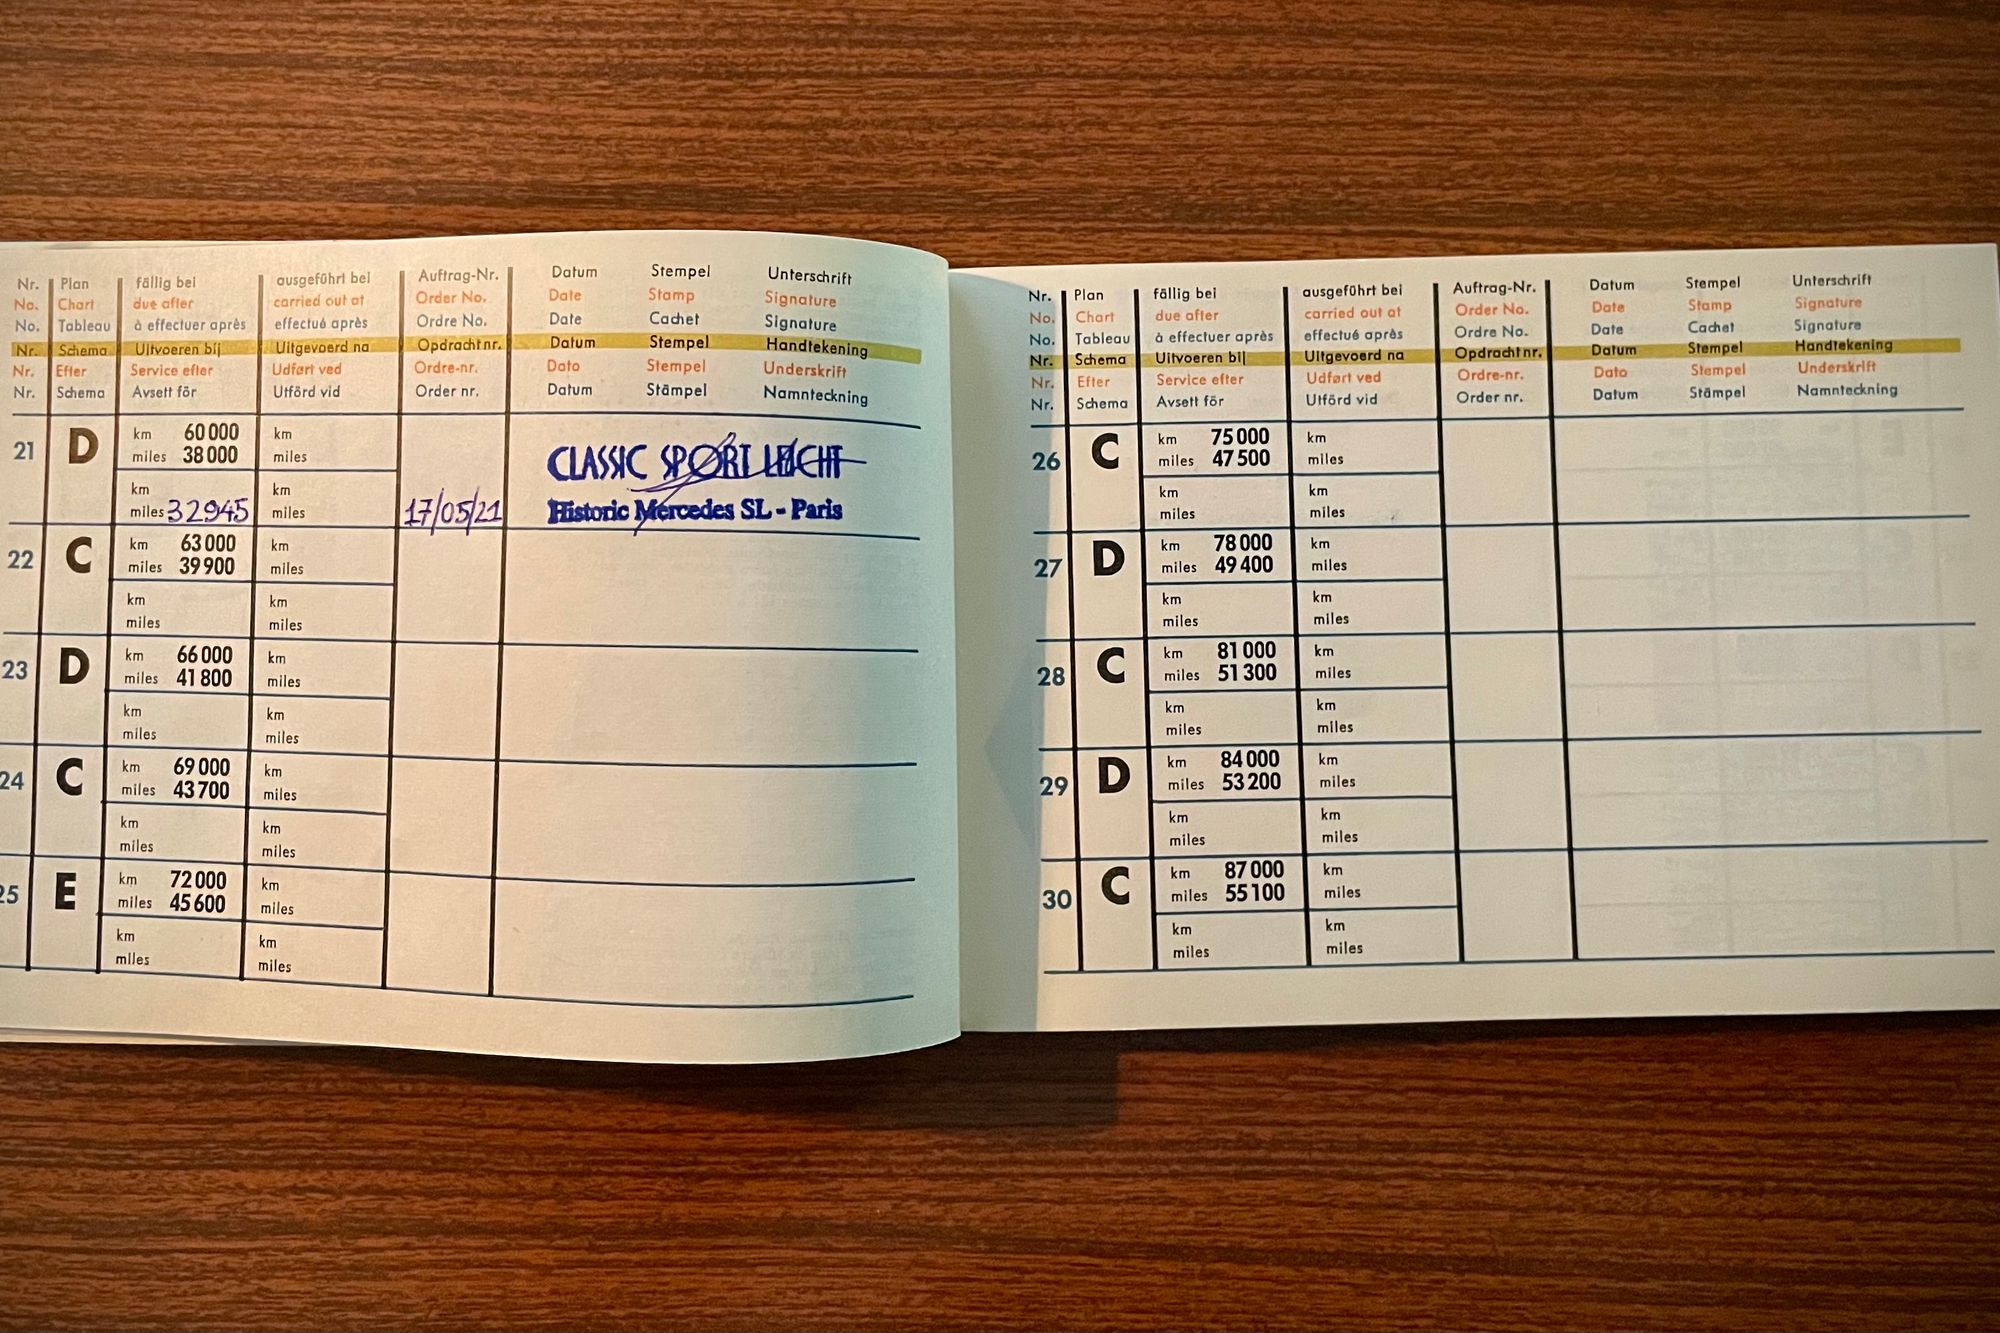 Nr. Plan fällig bei ausgeführt bei Auftrag-Nr. Datum Stempel Unterschrift
No. Chart due after carried out at Order No. Date Stamp Signature
No. Tableau à effectuer après effectué après Ordre No. Date Cachet Signature
Nr. Schema Uitvoeren bij Uitgevoerd na Opdracht nr. Datum Stempel Handtekening
Nr. Efter Service efter Udført ved Ordre-nr. Dato Stempel Underskrift
Nr. Schema Avsett för Utförd vid Order nr. Datum Stämpel Namnteckning
21 D km 60 000 km
miles 38 000 miles
CLASSIC SPORT LEICHT
km km
miles 32945 miles 17/05/21 Historic Mercedes SL - Paris
22 C km 63 000 km
miles 39 900 miles
km km
miles miles
23 D km 66 000 km
miles 41 800 miles
km km
miles miles
24 C km 69 000 km
miles 43 700 miles
km km
miles miles
25 E km 72 000 km
miles 45 600 miles
km km
miles miles
Nr. Plan fällig bei ausgeführt bei Auftrag-Nr. Datum Stempel Unterschrift
No. Chart due after carried out at Order No. Date Stamp Signature
No. Tableau à effectuer après effectué après Ordre No. Date Cachet Signature
Nr. Schema Uitvoeren bij Uitgevoerd na Opdracht nr. Datum Stempel Handtekening
Nr. Efter Service efter Udført ved Ordre-nr. Dato Stempel Underskrift
Nr. Schema Avsett för Utförd vid Order nr. Datum Stämpel Namnteckning
26 C km 75 000 km
miles 47 500 miles
km km
miles miles
27 D km 78 000 km
miles 49 400 miles
km km
miles miles
28 C km 81 000 km
miles 51 300 miles
km km
miles miles
29 D km 84 000 km
miles 53 200 miles
km km
miles miles
30 C km 87 000 km
miles 55 100 miles
km km
miles miles